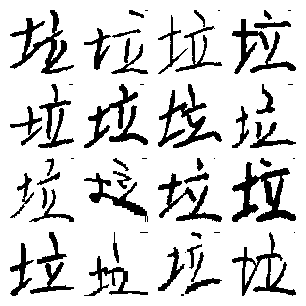 垃垃垃垃
垃垃垃垃
垃垃垃垃
垃垃垃垃